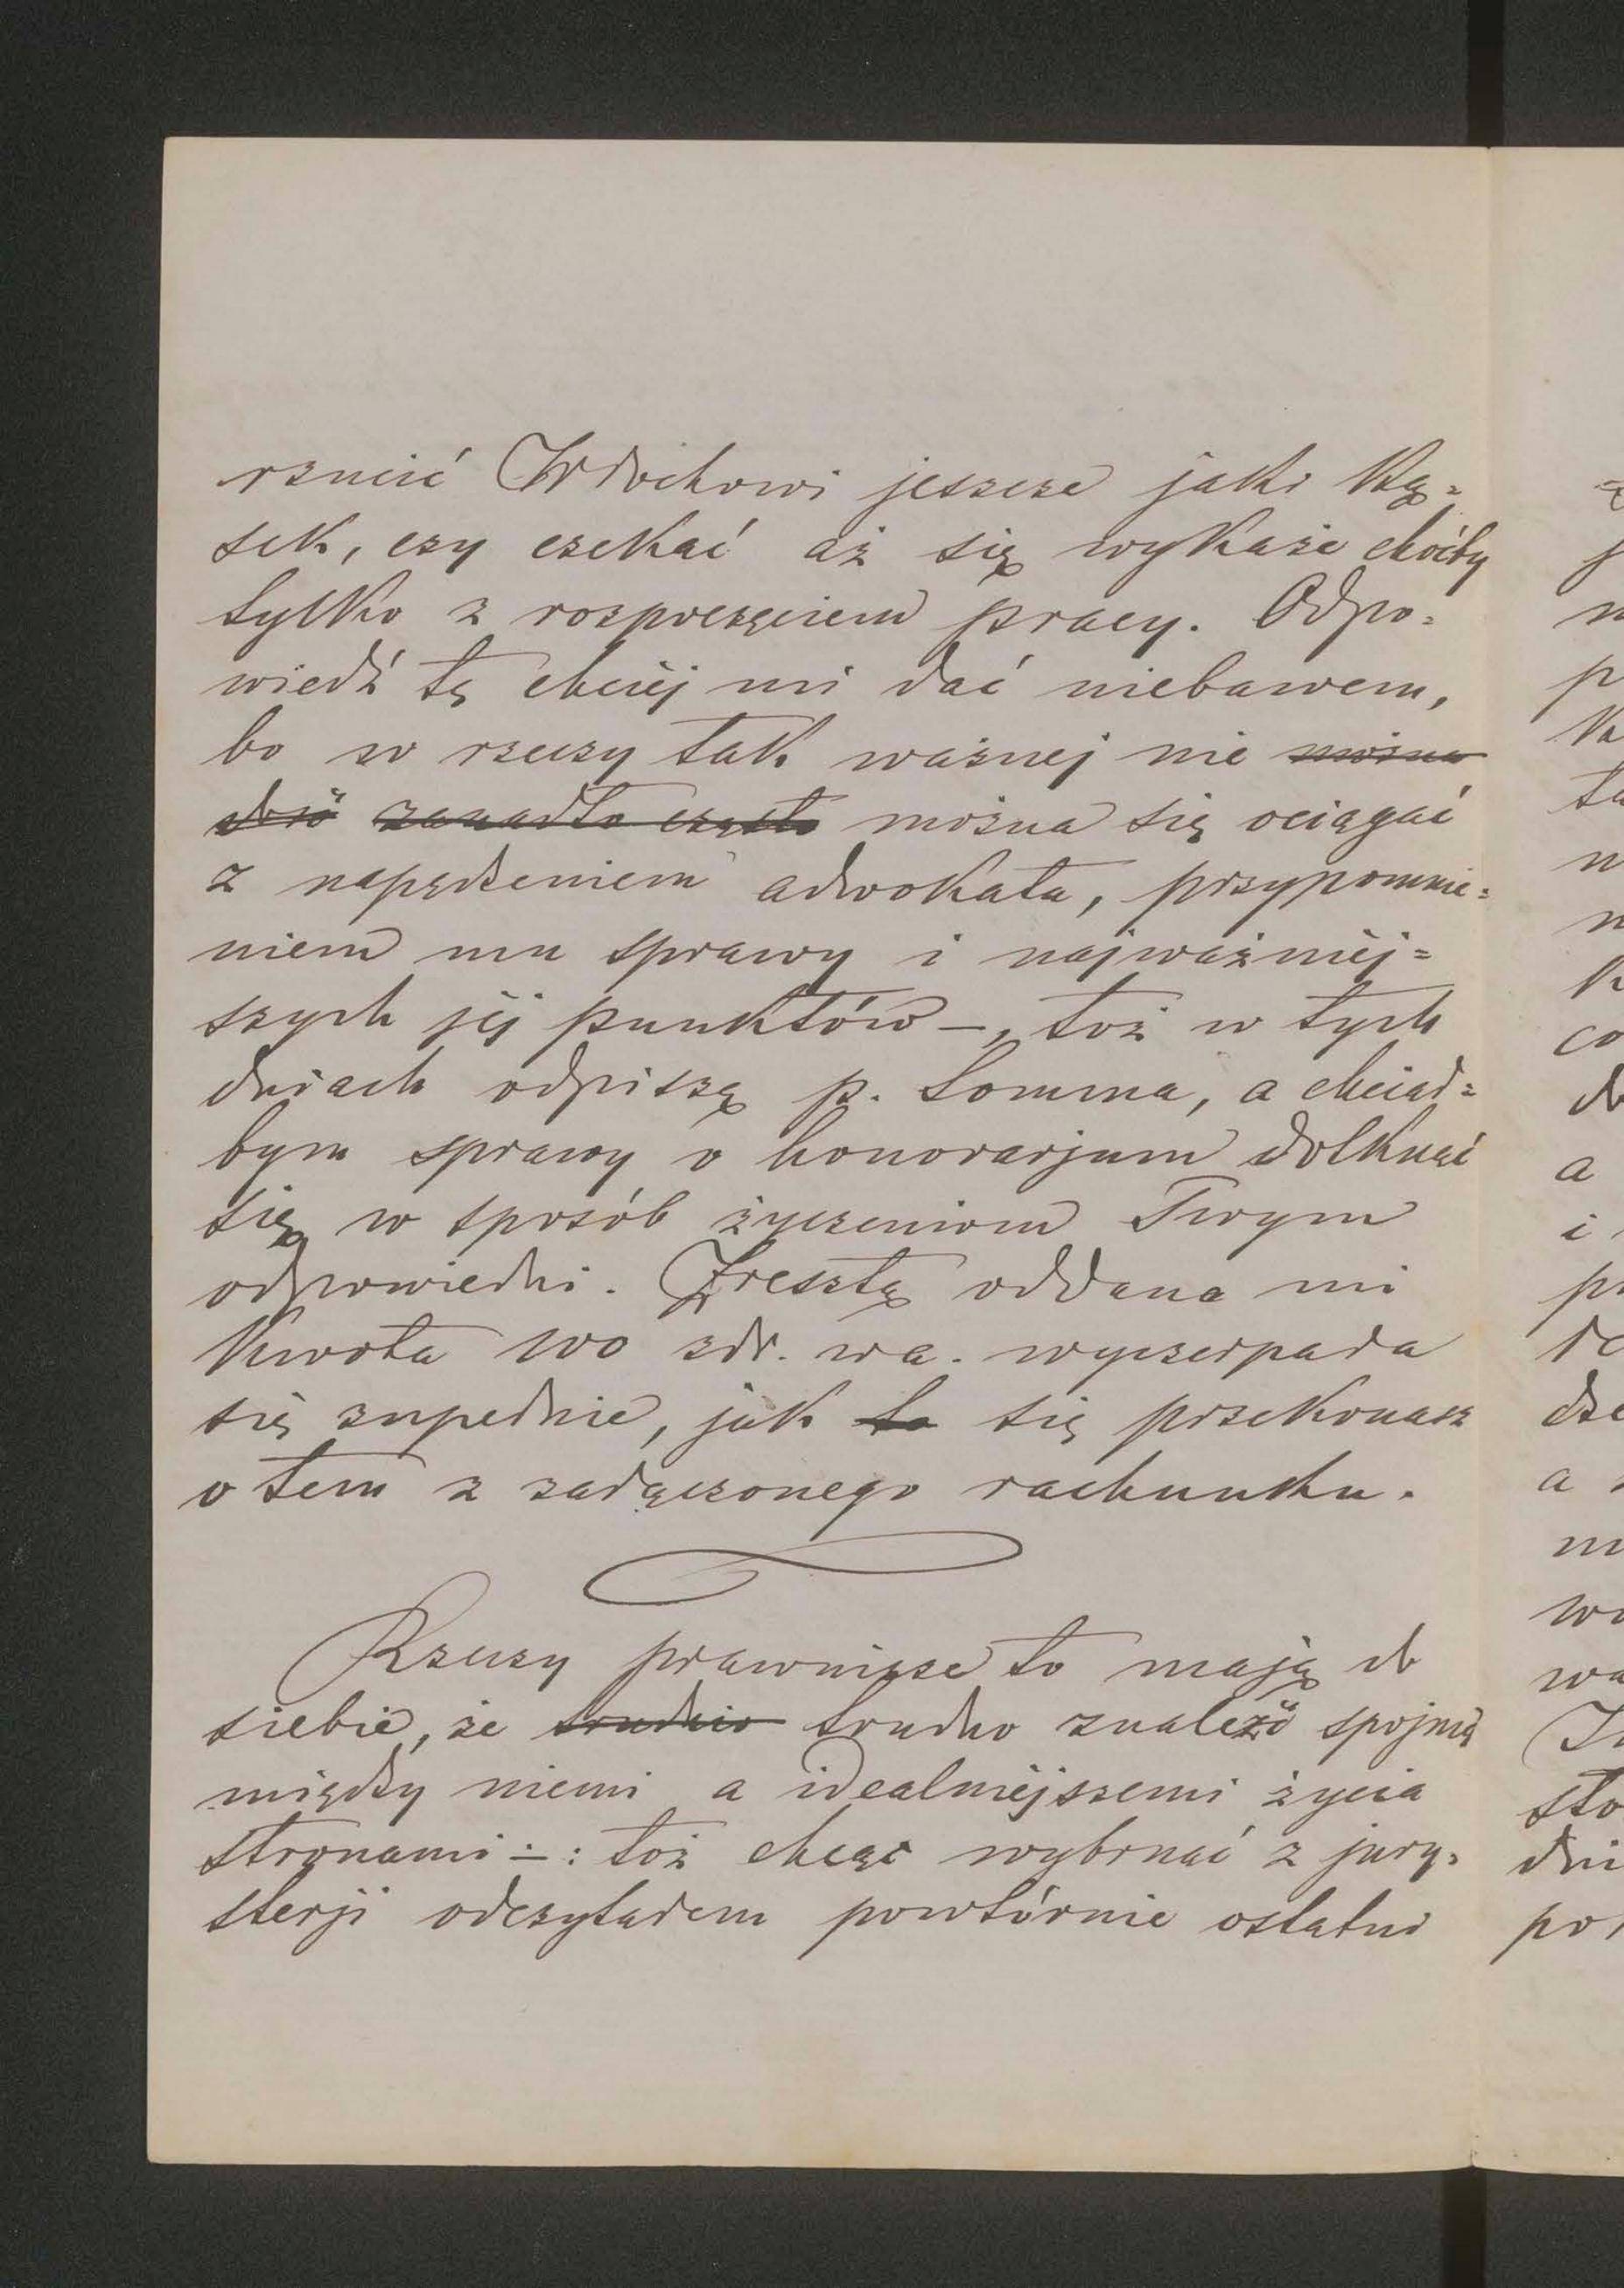 rzucić Włochowi jeszcze jaki kę=
sek, czy czekać aż się wykaże choćby
tylko z rozpoczęciem pracy. Odpo=
wiedź tę chciéj mi dać niebawem,
bo w rzeczy tak ważnej nie można
dość zanadto często można się ociągać
z napędzeniem adwokata, przypomnie=
niem mu sprawy i najważniéj=
szych jéj punktów –, toż w tych
dniach odpiszę p. Somma, a chciał=
bym sprawy o honorarjum dotknąć
się w sposób życzeniom Twym
odpowiedni. Zresztą oddana mi
kwota 100 złr. wa. wyczerpała
się zupełnie, jak to się przekonasz
o tem z załączonego rachunku.
Rzeczy prawnicze to mają do
siebie, że trudno trudno znaleźć spojnię
między niemi a idealniéjszemi życia
stronami –: toż chcąc wybrnąć z jury=
sterji odczytałem powtórnie ostatni